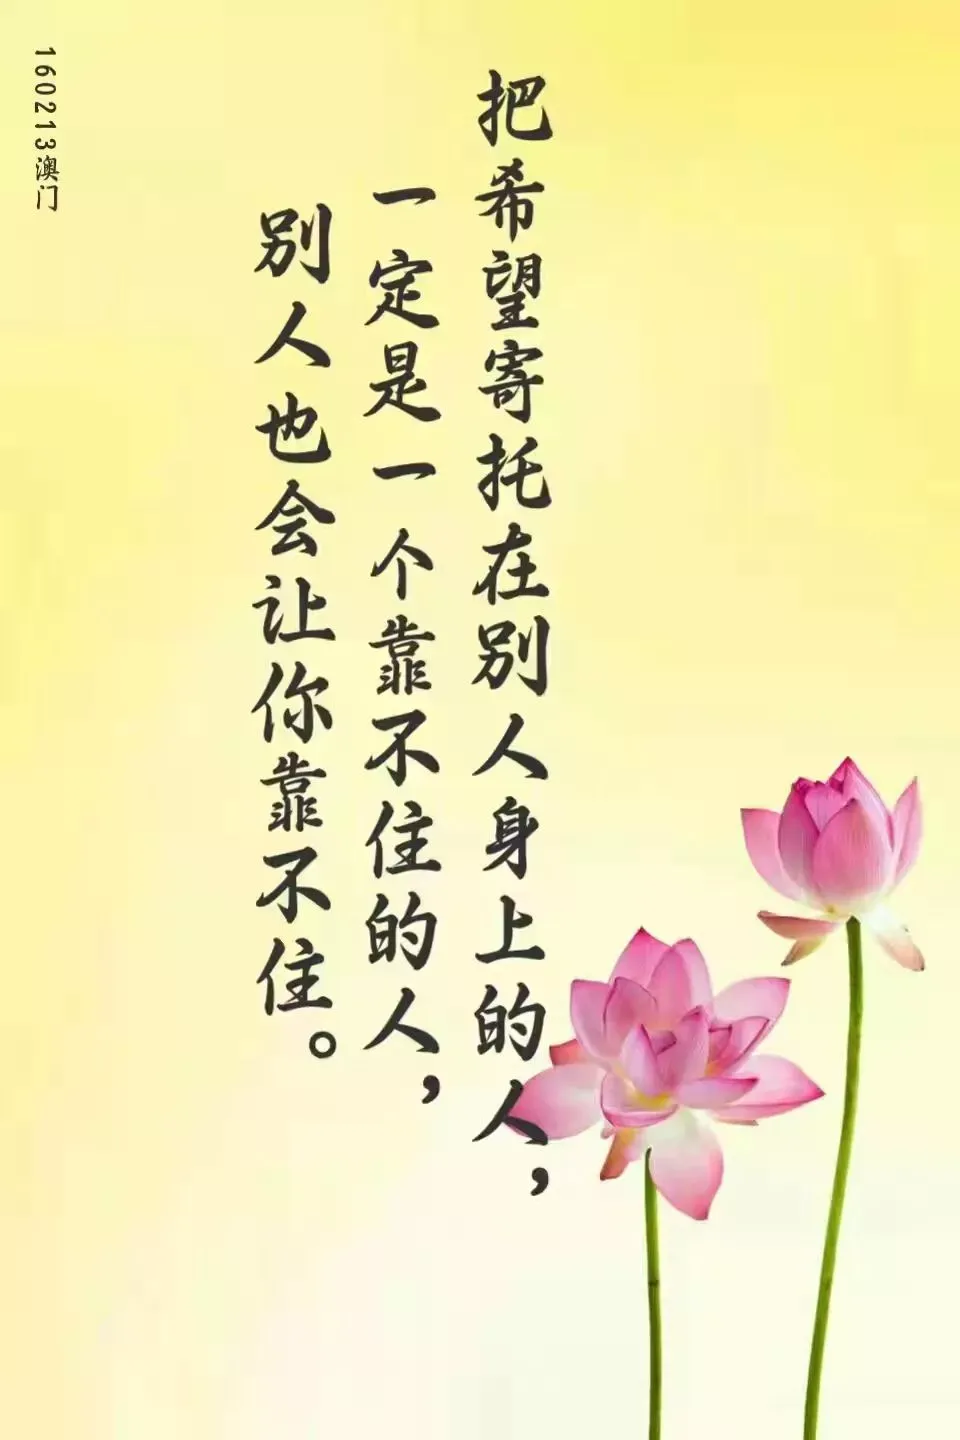 把希望寄托在别人身上的人，
一定是一个靠不住的人，
别人也会让你靠不住。
160213澳门